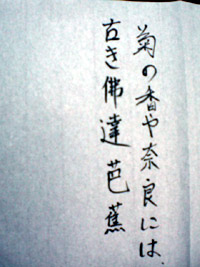 菊の香や奈良には
古き佛達芭蕉